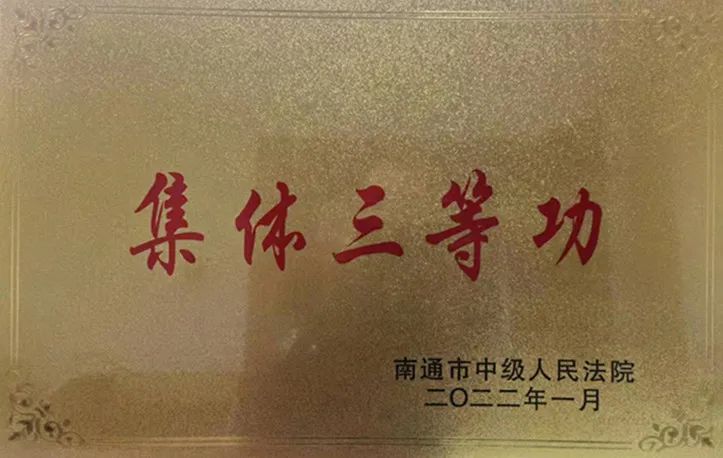 集体三等功
南通市中级人民法院
二〇二二年一月